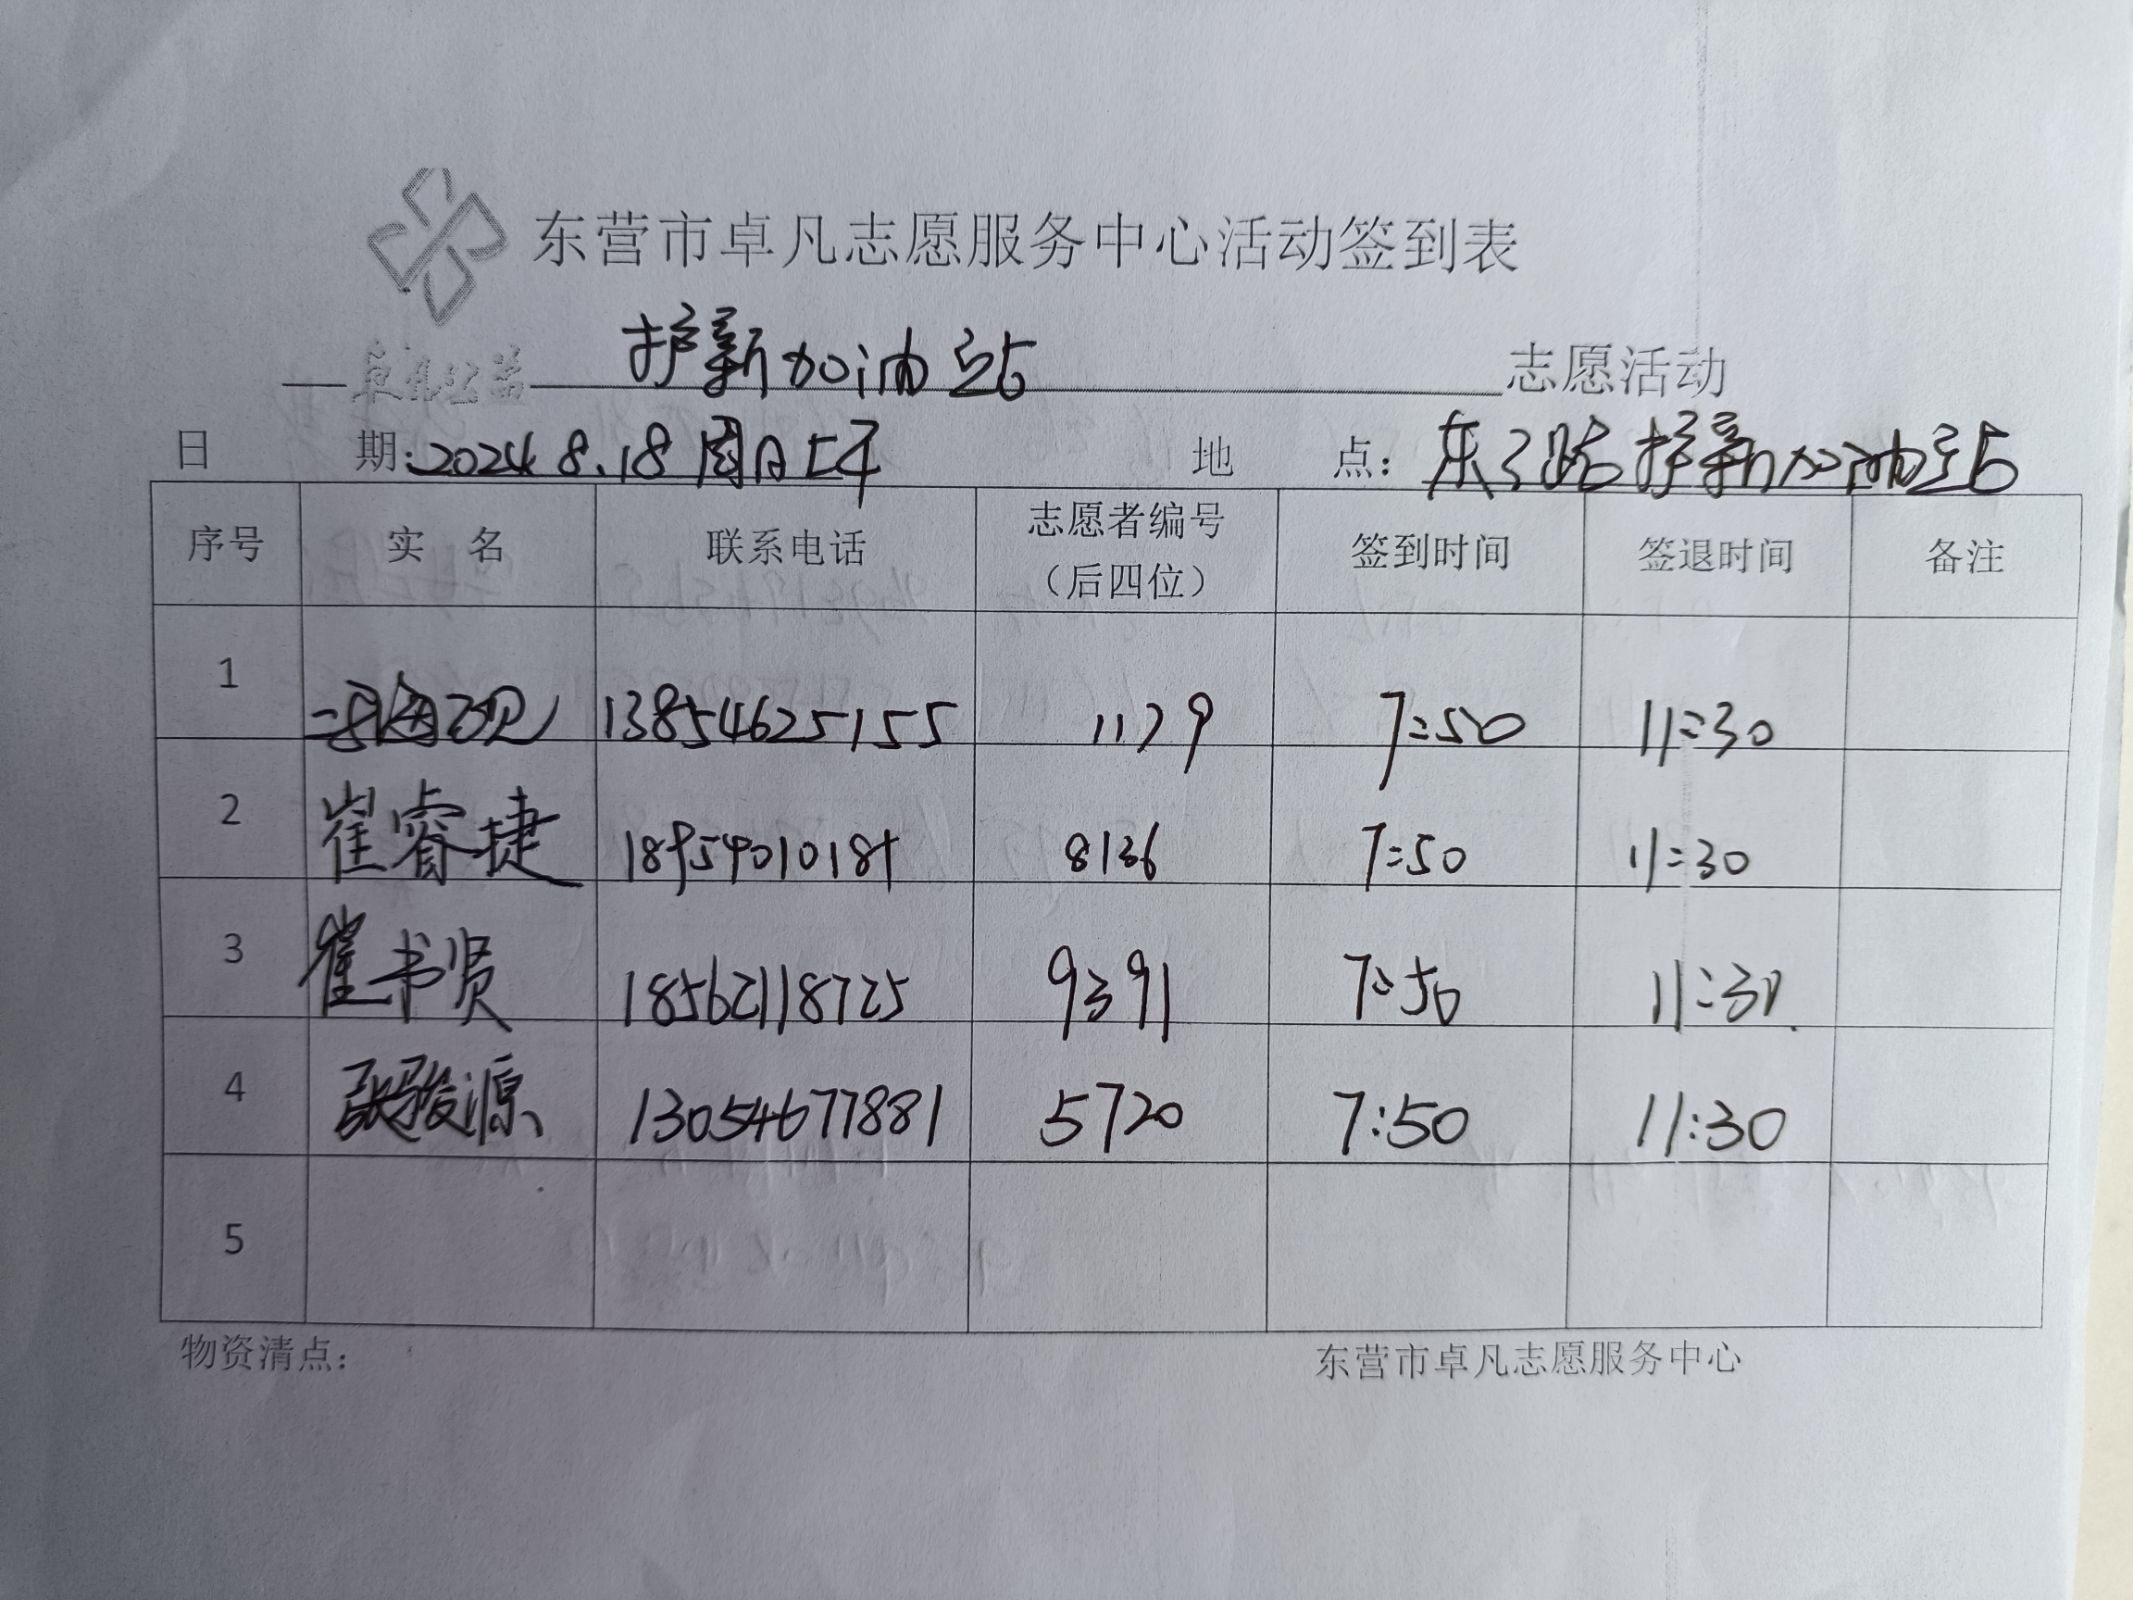 东营市卓凡志愿服务中心活动签到表
卓凡公益 护新加油站 志愿活动
日 期:2024 8.18 周日上午 地 点:东三路护新加油站
序号 实 名 联系电话 志愿者编号（后四位） 签到时间 签退时间 备注
1 13854625155 1179 7:50 11:30
2 崔睿捷 8136 7:50 11:30
3 崔书贤 18562118725 9391 7:50 11:30
4 张骏源 13054677881 5720 7:50 11:30
5
物资清点： 东营市卓凡志愿服务中心